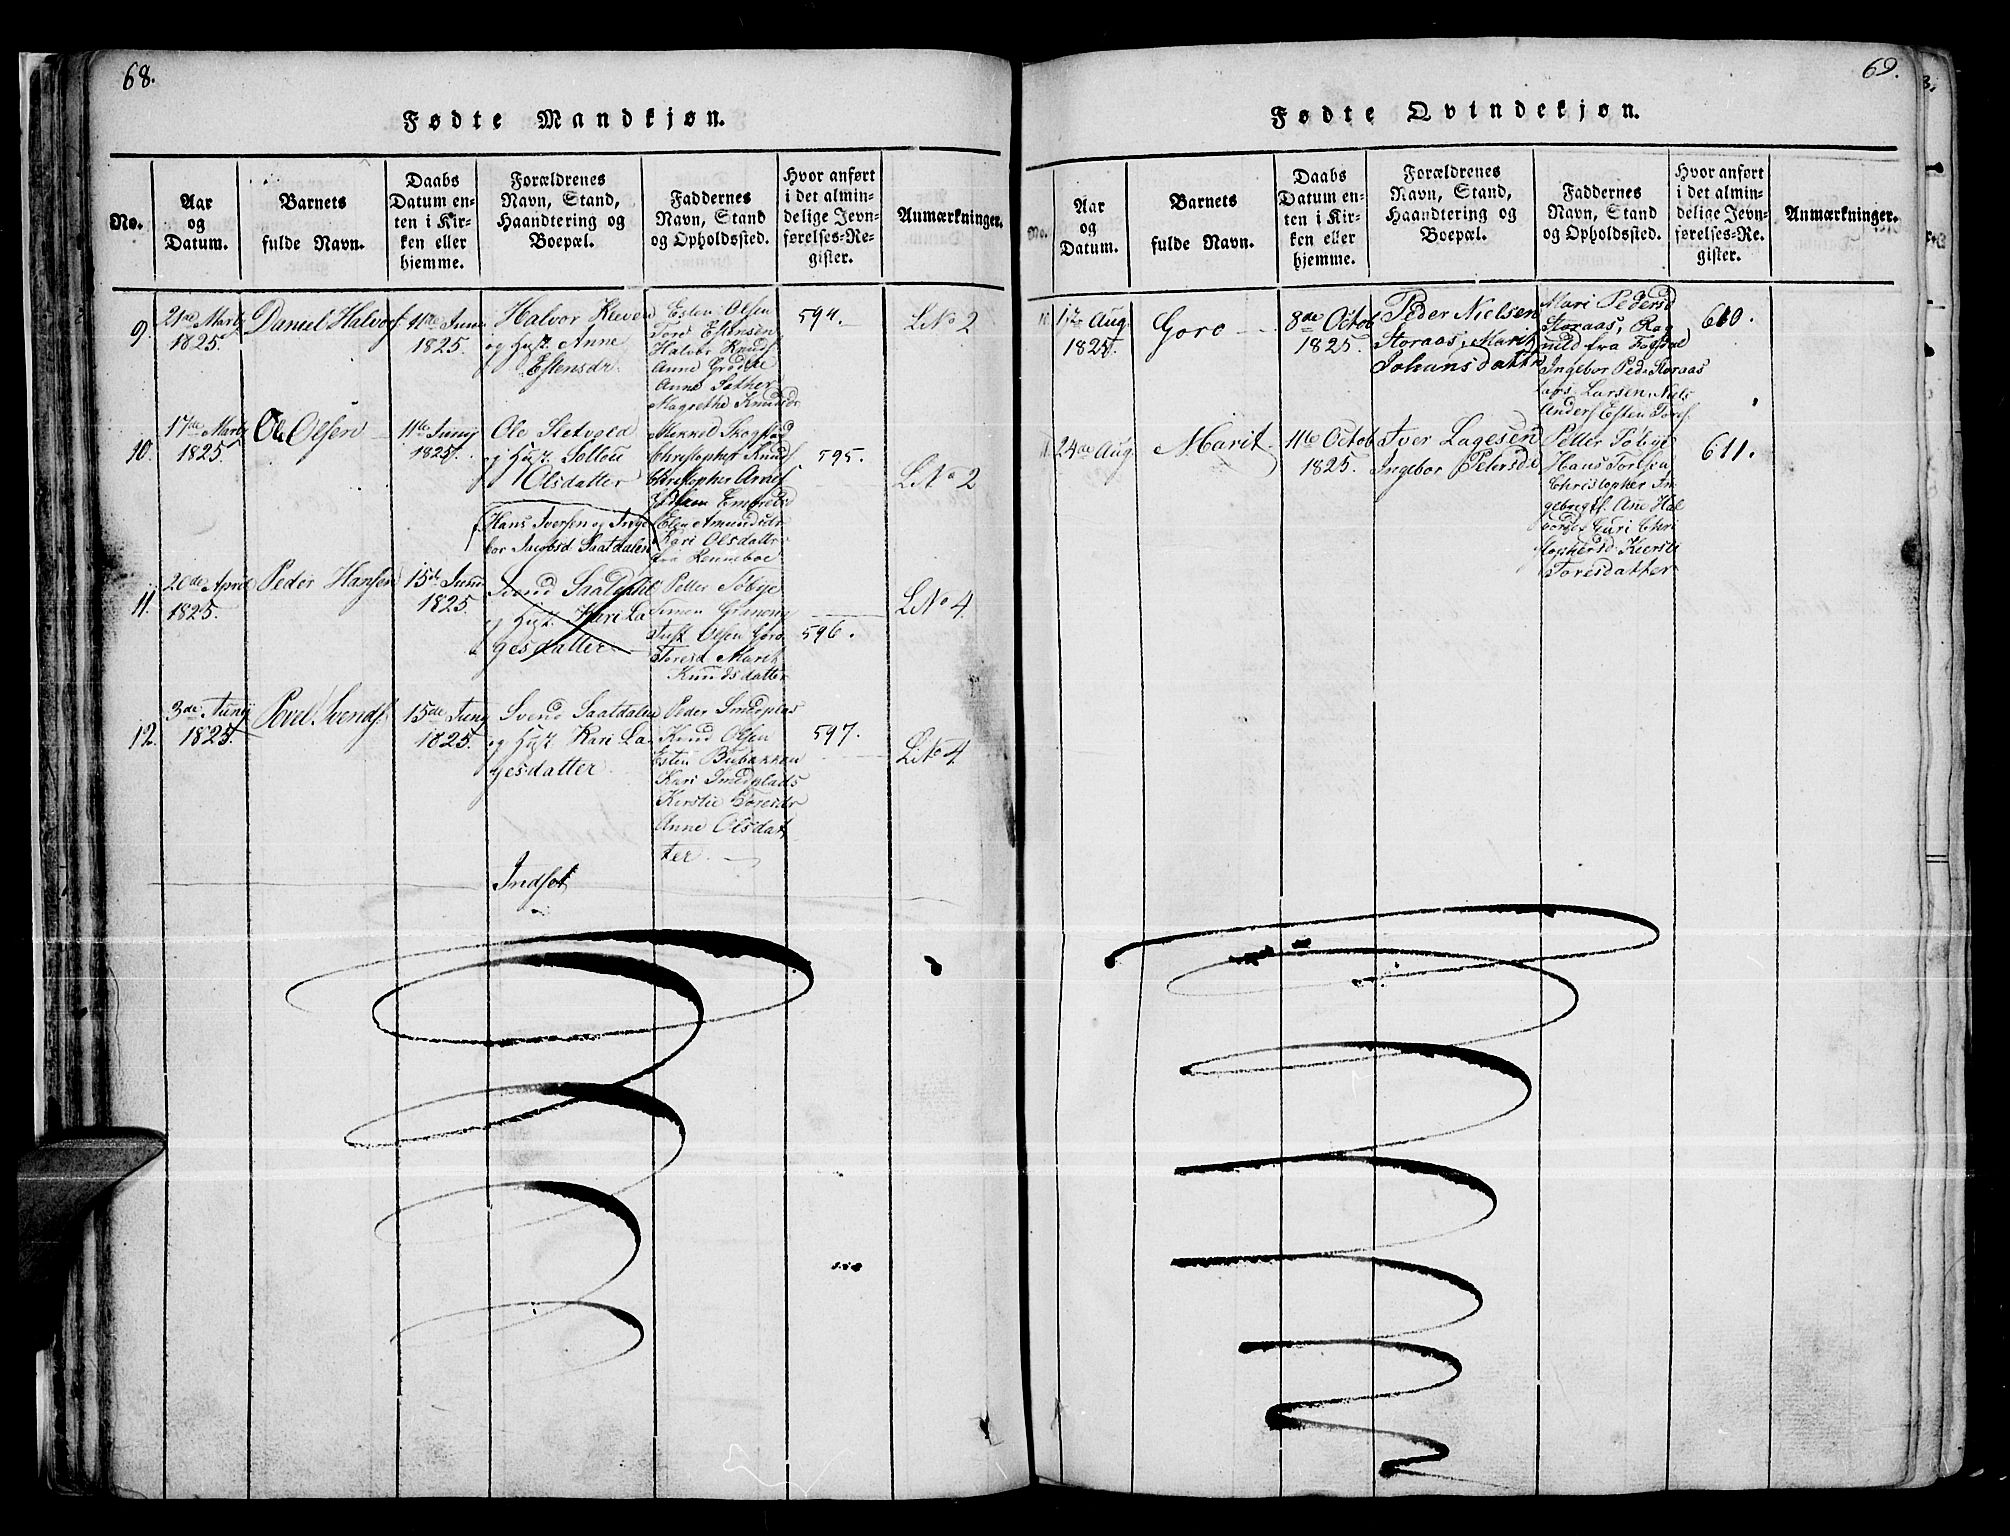 68.
Fødte Mandkjøn.
No.
Aar
og
Datum.
Barnets
fulde Navn.
Daabs
Datum en-
ten i Kir-
ken eller
hjemme.
Forældrenes
Navn, Stand,
Haandtering og
Boepæl.
Faddernes
Navn, Stand
og Opholdssted.
Hvor anført
i det almin-
delige Jevn-
førelses-Re-
gister.
Anmærkninger.
9.
21de Marti
1825.
Daniel Halvors
11te Juni
1825.
Halvor Kleven
og Hust. Anne
Estensdr.
Esten Olsen
Tord Estensen
Halvor Knuds
Anne
Anne Sæther
Magrethe Knudsdr
594.
L No 2
10.
17de Marti
1825.
Ole Olsen
11te Junij
1825.
Ole Sletvold
og Hust.
Olsdatter
Skogstad
Christopher Knuds
Christopher
Elen Amundsdr
Kari Olsdatter
fra Renneboe
595.
L No 2
Hans Iversen og Inge
bor Jacobsd Saatdalen
11.
20de April
1825.
Peder Hansen
15de Juni
1825.
Svend Saatdahl
og Hust. Kari La
gesdatter
Petter Søbye
Simen Graneng
Just Olsen Goro
Toresd Marit
Knudsdatter
596.
L No 4.
12.
3de Junij
1825.
Povel Svends.
15de Junij
1825.
Svend Saatdalen
og Hust. Kari La
gesdatter
Peder Smedplas
Knud Olsen
Esten Bubakken
Kari Smedplads
Kerstie Toresdr
Anne Olsdat
ter.
597.
L No 4
Indset
69.
Fødte Qvindekjøn.
No.
Aar
og
Datum.
Barnets
fulde Navn.
Daabs
Datum en-
ten i Kir-
ken eller
hjemme.
Forældrenes
Navn, Stand,
Haandtering og
Boepæl.
Faddernes
Navn, Stand
og Opholdssted.
Hvor anført
i det almin-
delige Jevn-
førelses-Re-
gister.
Anmærkninger.
Aug
1825.
Goro
8de Octob
1825.
Peder Nielsen
Storaas, Marit
Johansdattr
Mari Pedersd
Storaas, Rag
nild fra
Ingebor Pedr. Storaas
Lars Larsen Niels
Anders Esten Tores.
610.
24de Aug
Marit
11te Octob
1825.
Iver Lagesen
Ingebor Petersdr
Petter Søbye
Hans
Christopher In
gebregts. Ane Hal
vorsd Guri Chri
stophersd Kiersti
Toresdatter
611.